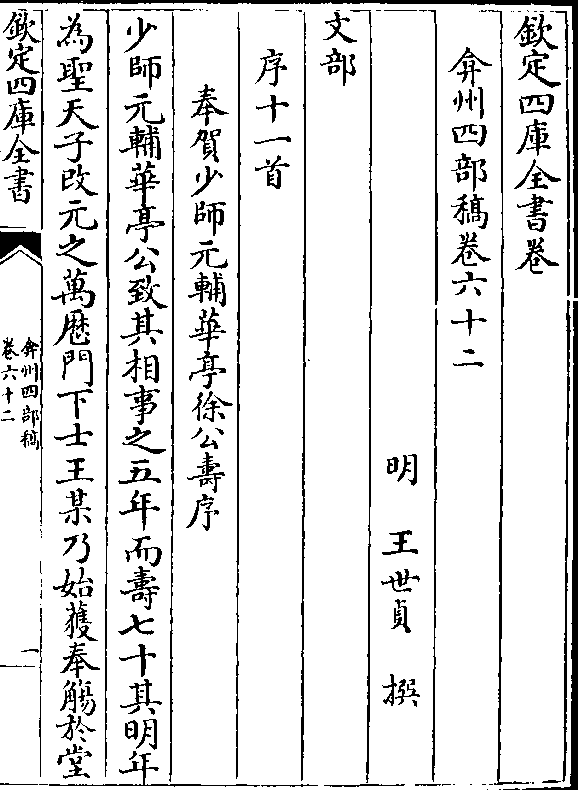 欽定四庫全書卷
弇州四部稿卷六十二
明 王世貞 撰
文部
序十一首
奉賀少師元輔華亭徐公壽序
少師元輔華亭公致其相事之五年而壽七十其明年
為聖天子改元之萬厯門下士王某乃始獲奉觴於堂
欽定四庫全書
弇州四部稿
卷六十二
一